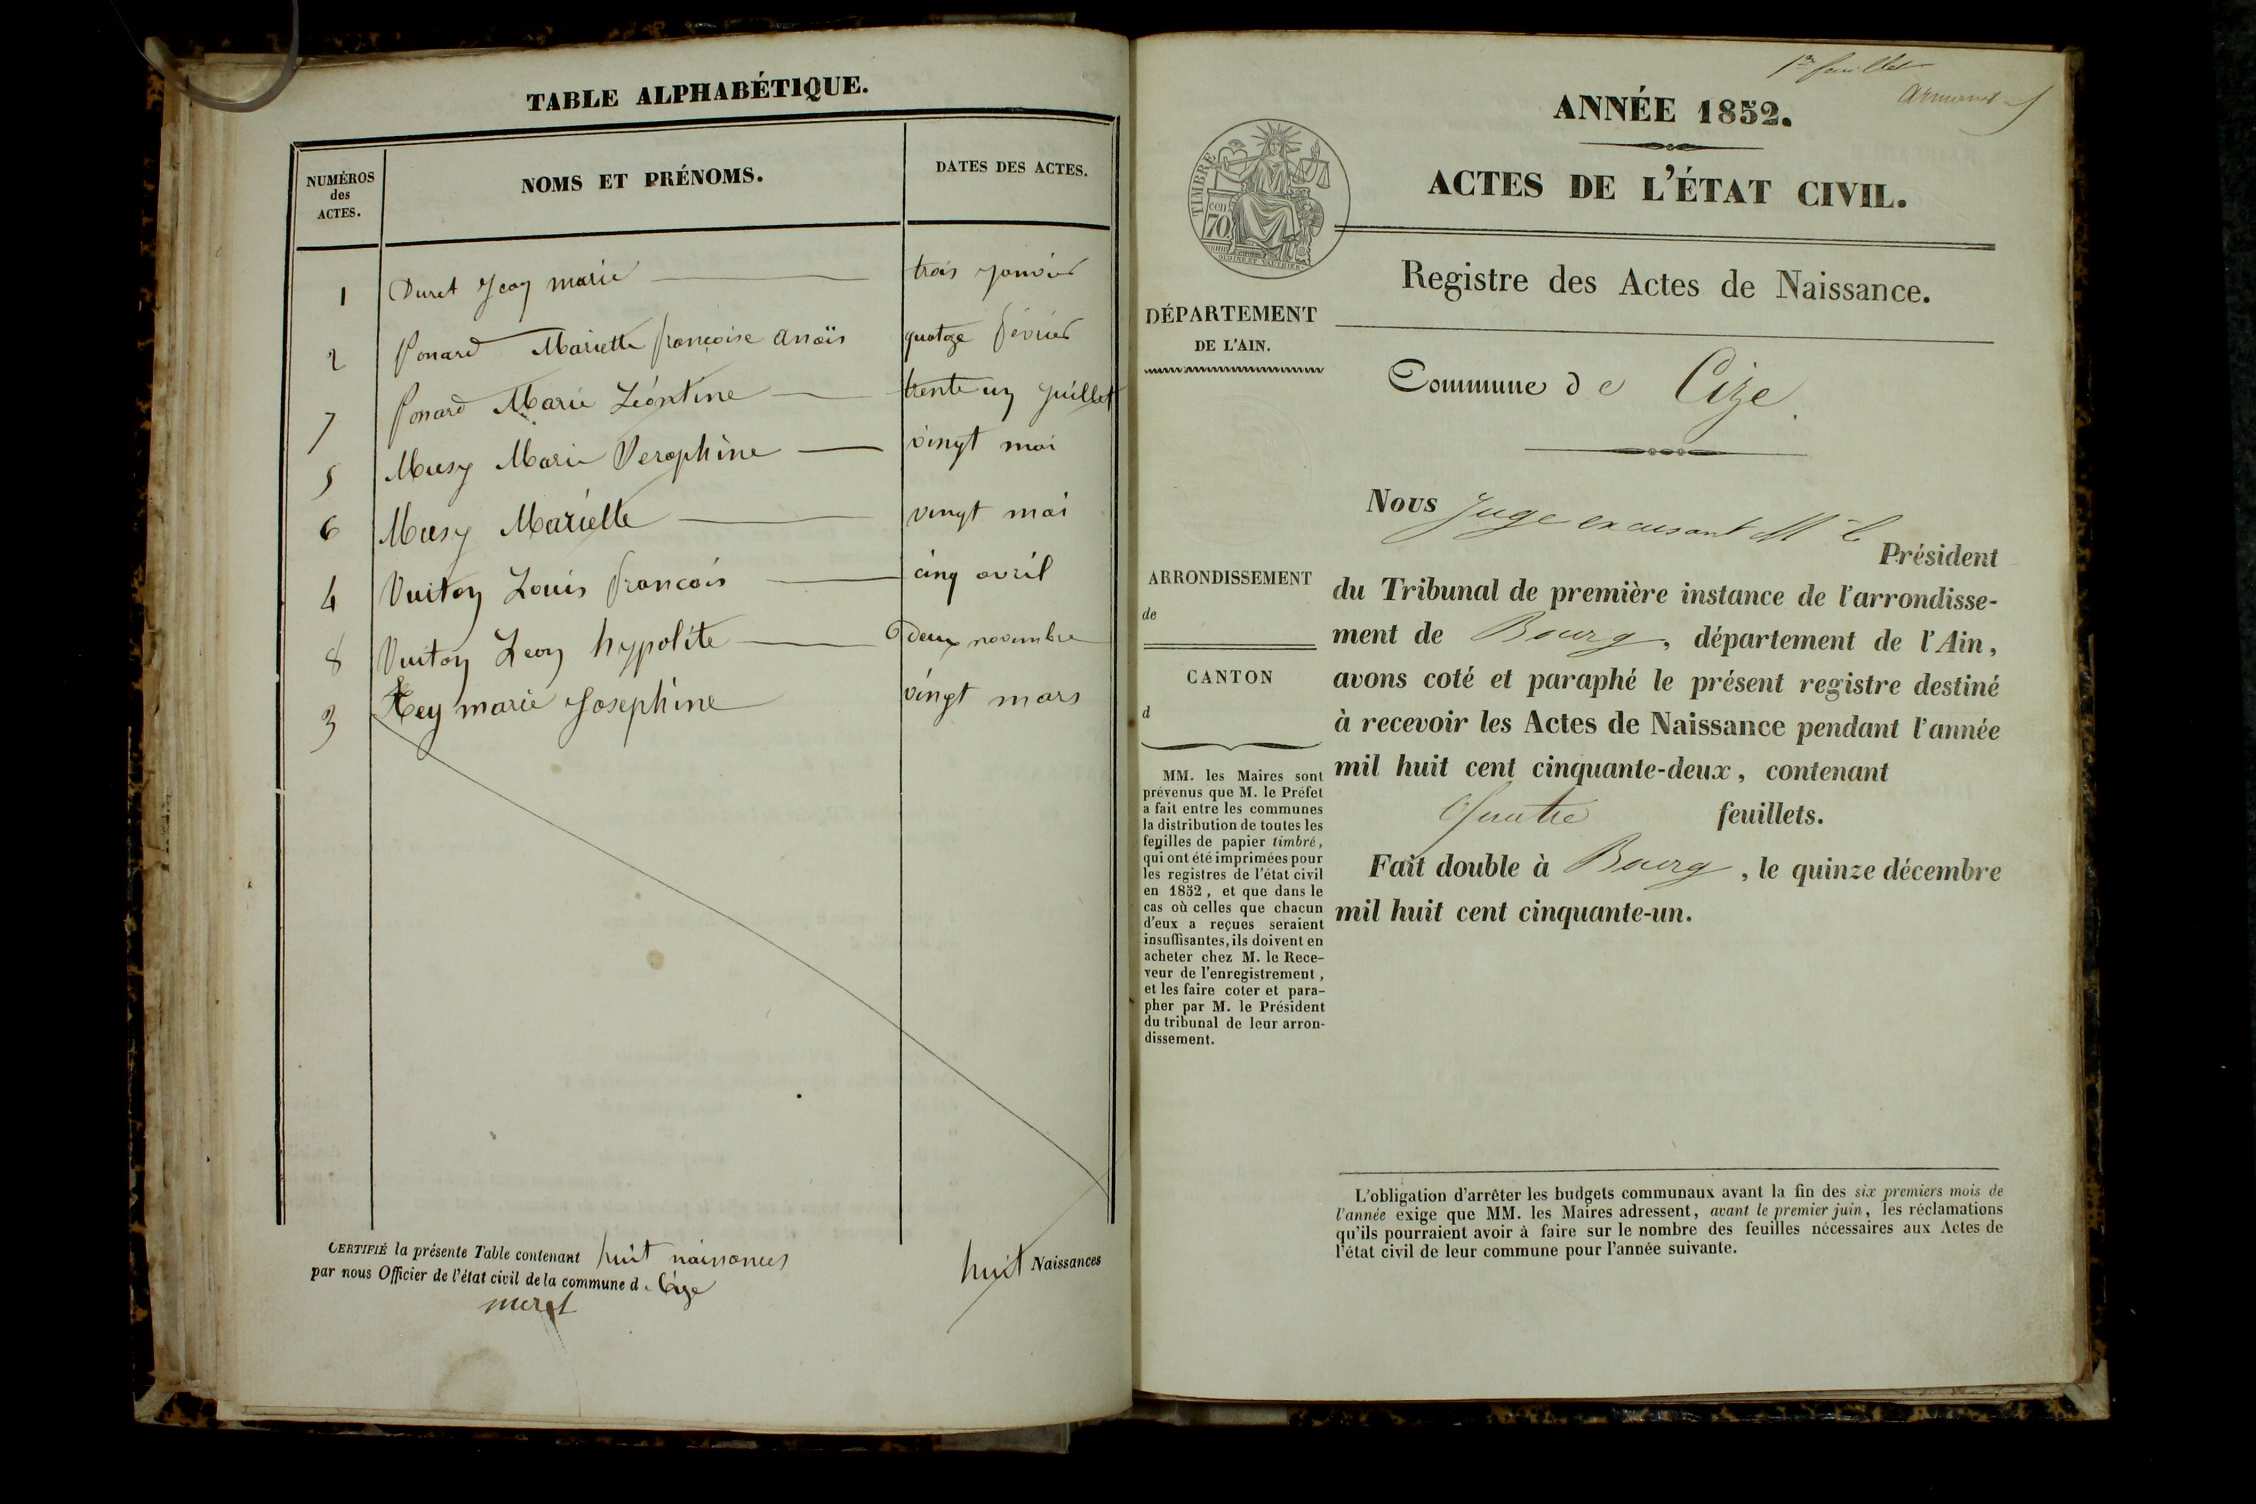 TABLE ALPHABÉTIQUE.
NUMÉROS
des
ACTES.
NOMS ET PRÉNOMS.
DATES DES ACTES.
1 Duret Jean marie trois janvier
2 Ponard Mariette françoise anaïs quatoze février
7 Ponard Marie Léontine trente un juillet
5 Musy Marie Seraphine vingt mai
6 Musy Mariette vingt mai
4 Vuiton Louis francois cinq avril
8 Vuiton Leon hypolite Deux novembre
3 Rey marie Josephine vingt mars
CERTIFIÉ la présente Table contenant huit naissances
huit Naissances
par nous Officier de l'état civil de la commune d e Cize
muret
1er feuillet
ANNÉE 1852.
ACTES DE L'ÉTAT CIVIL.
TIMBRE
70
cen
Registre des Actes de Naissance.
DÉPARTEMENT
DE L'AIN.
Commune d e Cize.
ARRONDISSEMENT
de
CANTON
d
MM. les Maires sont
prévenus que M. le Préfet
a fait entre les communes
la distribution de toutes les
feuilles de papier timbré,
qui ont été imprimées pour
les registres de l'état civil
en 1852, et que dans le
cas où celles que chacun
d'eux a reçues seraient
insuffisantes, ils doivent en
acheter chez M. le Rece-
veur de l'enregistrement,
et les faire coter et para-
pher par M. le Président
du tribunal de leur arron-
dissement.
Nous Juge excusant Mr le
Président
du Tribunal de première instance de l'arrondisse-
ment de Bourg, département de l'Ain,
avons coté et paraphé le présent registre destiné
à recevoir les Actes de Naissance pendant l'année
mil huit cent cinquante-deux, contenant
Quatre feuillets.
Fait double à Bourg, le quinze décembre
mil huit cent cinquante-un.
L'obligation d'arrêter les budgets communaux avant la fin des six premiers mois de
l'année exige que MM. les Maires adressent, avant le premier juin, les réclamations
qu'ils pourraient avoir à faire sur le nombre des feuilles nécessaires aux Actes de
l'état civil de leur commune pour l'année suivante.